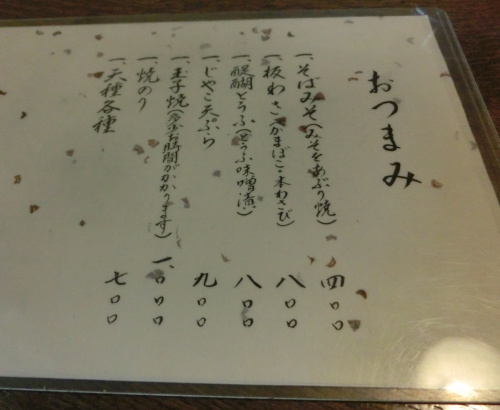 おつまみ
一、そばみそ(みそをあぶり焼) 四〇〇
一、板わさ(かまぼこ・本わさび) 八〇〇
一、醍醐とうふ(とうふ味噌漬) 八〇〇
一、じゃこ天ぷら 九〇〇
一、玉子焼(お時間がかかります) 一、〇〇〇
一、焼のり 七〇〇
一、天種各種